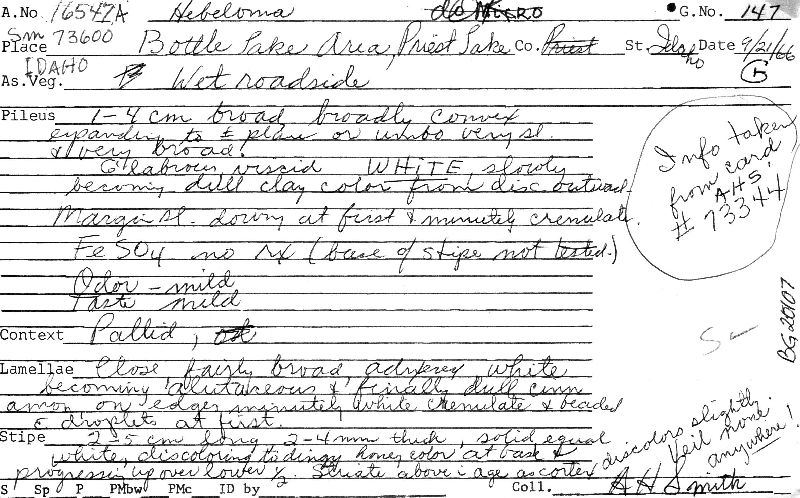 A.No 16542A Hebeloma do MICRO G.No. 147
Sm 73600
Place Bottle Lake Area, Priest Lake Co. Priest St. Idaho Date 9/21/66
IDAHO
As.Veg. Wet roadside 5
Pileus 1-4 cm broad broadly convex
expanding to ± plane or umbo very sl.
& very broad!
Glabrous, viscid WHITE, slowly
becoming dull clay color from disc outward
Margin sl. downy at first & minutely crenulate.
FeSO4 no rx (base of stipe not tested.)
Odor - mild
Taste mild
Context Pallid,
Lamellae Close fairly broad adnexed, white
becoming alutaceous & finally dull cinn
amon, on edges minutely white crenulate & beaded
c droplets at first.
Stipe 2-5 cm long 2-4 mm thick, solid equal
white, discoloring to dingy honey color at base &
progressing up over lower 1/2. Striate above c age as cortex discolors slightly.
Veil none
anywhere!
S Sp P PMbw PMc ID by Coll. AH Smith
Info taken
from card
AHS
# 73344
BG20107